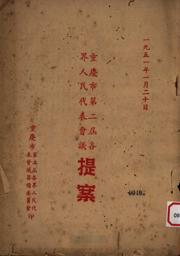 一九五一年一月二十日
重慶市第二屆各
界人民代表會議
提案
重慶市
第二屆各界人民代
表會議籌備委員會
印